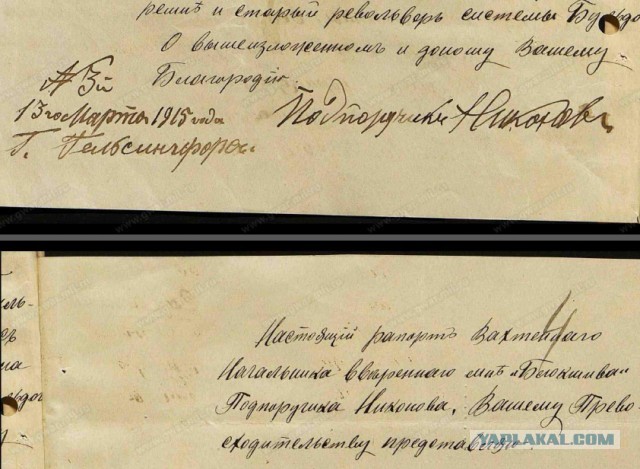 решъ и старый револьверъ системы Бульдо
О вышеизложенномъ и доношу Вашему
Благородію.
№ 3й
13го Марта 1915 года
Подпоручикъ Никоновъ
Г. Гельсингфорсъ
Настоящій рапортъ Вахтеннаго
Начальника ввѣреннаго мнѣ
Подпоручика Никонова, Вашему Прево-
сходительству представляю.
YAPLAKAL.COM